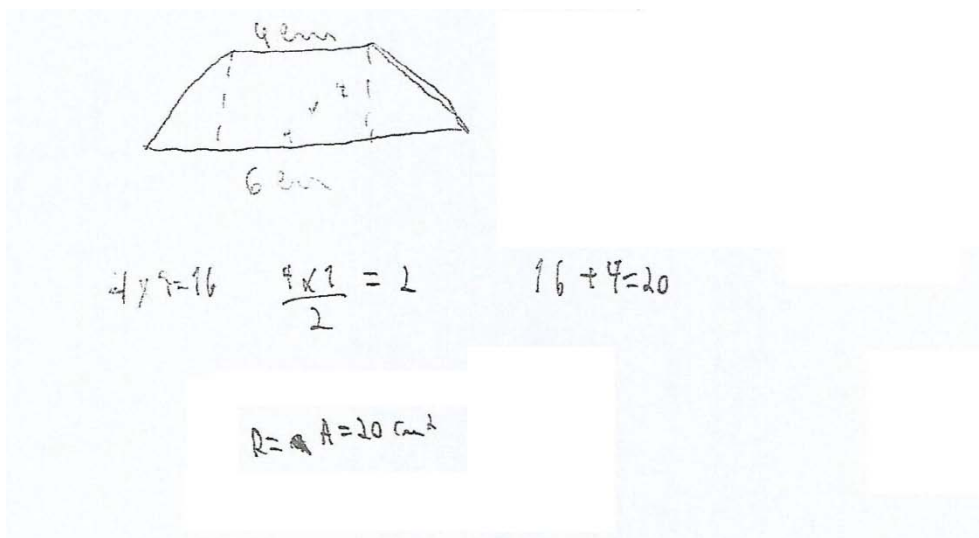 4 cm
6 cm
4 x 4 = 16 4 x 1 / 2 = 2 16 + 4 = 20
R = A = 20 cm²